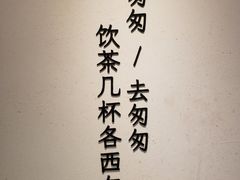 匆 / 去匆匆
饮茶几杯各西